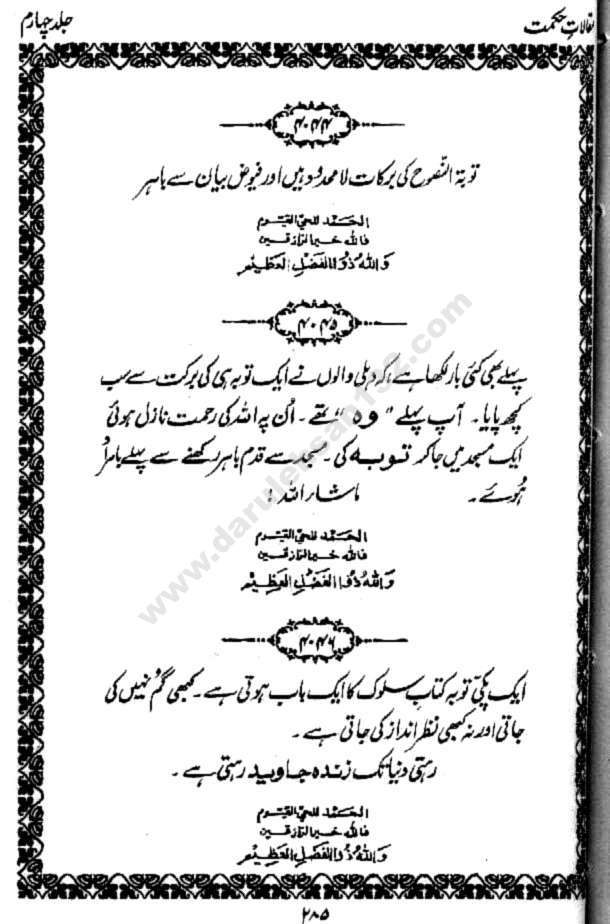 مقالاتِ حکمت
جلد چہارم
۴۰۴۴
توبۃ النّصوح کی برکات لامحدود ہیں اور فیوض بیان سے باہر
الحَمد للحیّ القیّوم
فاللہ خیر الرّازقین
وَاللہُ ذُوالفَضلِ العَظِیْم
۴۰۴۵
پہلے بھی کئی بار لکھا ہے، کہ دہلی والوں نے ایک توبہ ہی کی برکت سے سب
کچھ پایا۔ آپ پہلے "وہ" تھے۔ اُن پہ اللہ کی رحمت نازل ہوئی
ایک مسجد میں جا کر توبہ کی۔ مسجد سے قدم باہر رکھنے سے پہلے بامراد
ہُوئے۔ ماشاء اللہ!
الحَمد للحیّ القیّوم
فاللہ خیر الرّازقین
وَاللہُ ذُوالفَضلِ العَظِیْم
۴۰۴۶
ایک پکّی توبہ کتابِ سلوک کا ایک باب ہوتی ہے۔ کبھی گُم نہیں کی
جاتی اور نہ کبھی نظر انداز کی جاتی ہے۔
رہتی دنیا تک زندہ جاوید رہتی ہے۔
الحَمد للحیّ القیّوم
فاللہ خیر الرّازقین
وَاللہُ ذُوالفَضلِ العَظِیْم
۲۸۵
www.darulehsan192.com